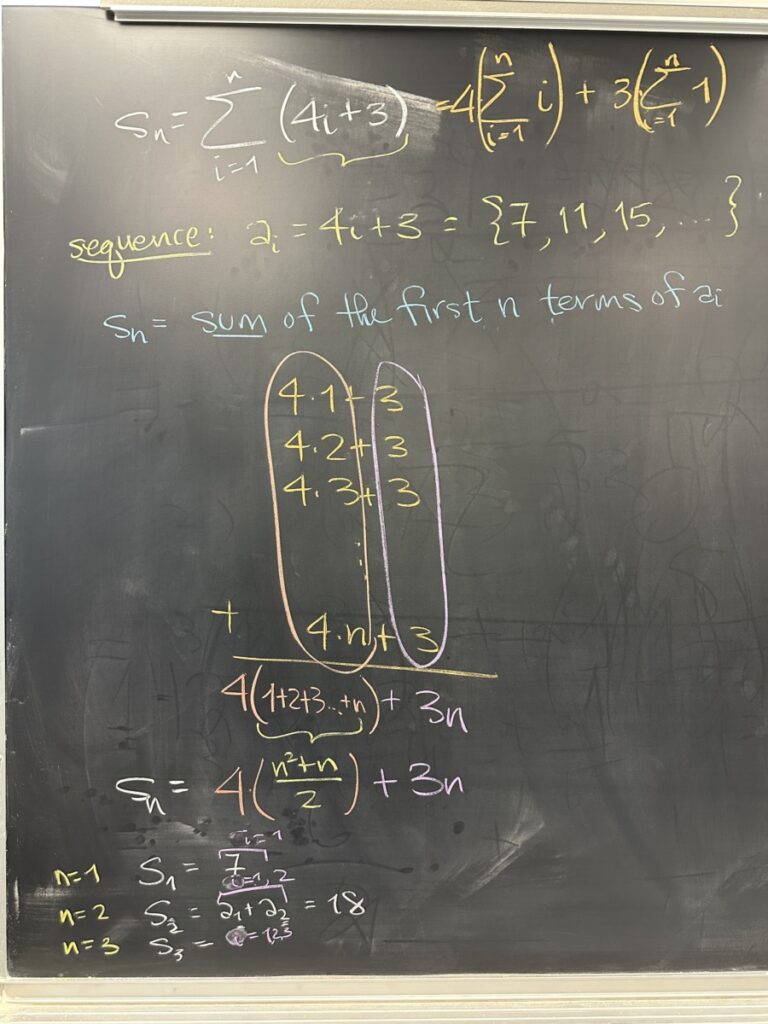 Sn = n∑i=1 (4i+3) = 4(n∑i=1 i) + 3(n∑i=1 1)
sequence: ai = 4i+3 = {7, 11, 15, ... }
Sn = sum of the first n terms of ai
4·1+3
4·2+3
4·3+3
⋮
+ 4·n+3
4(1+2+3...+n)+3n
Sn = 4·(n²+n/2)+3n
i=1
n=1 S1 = 7
i=1,2
n=2 S2 = a1+a2 = 18
n=3 S3 = i=123